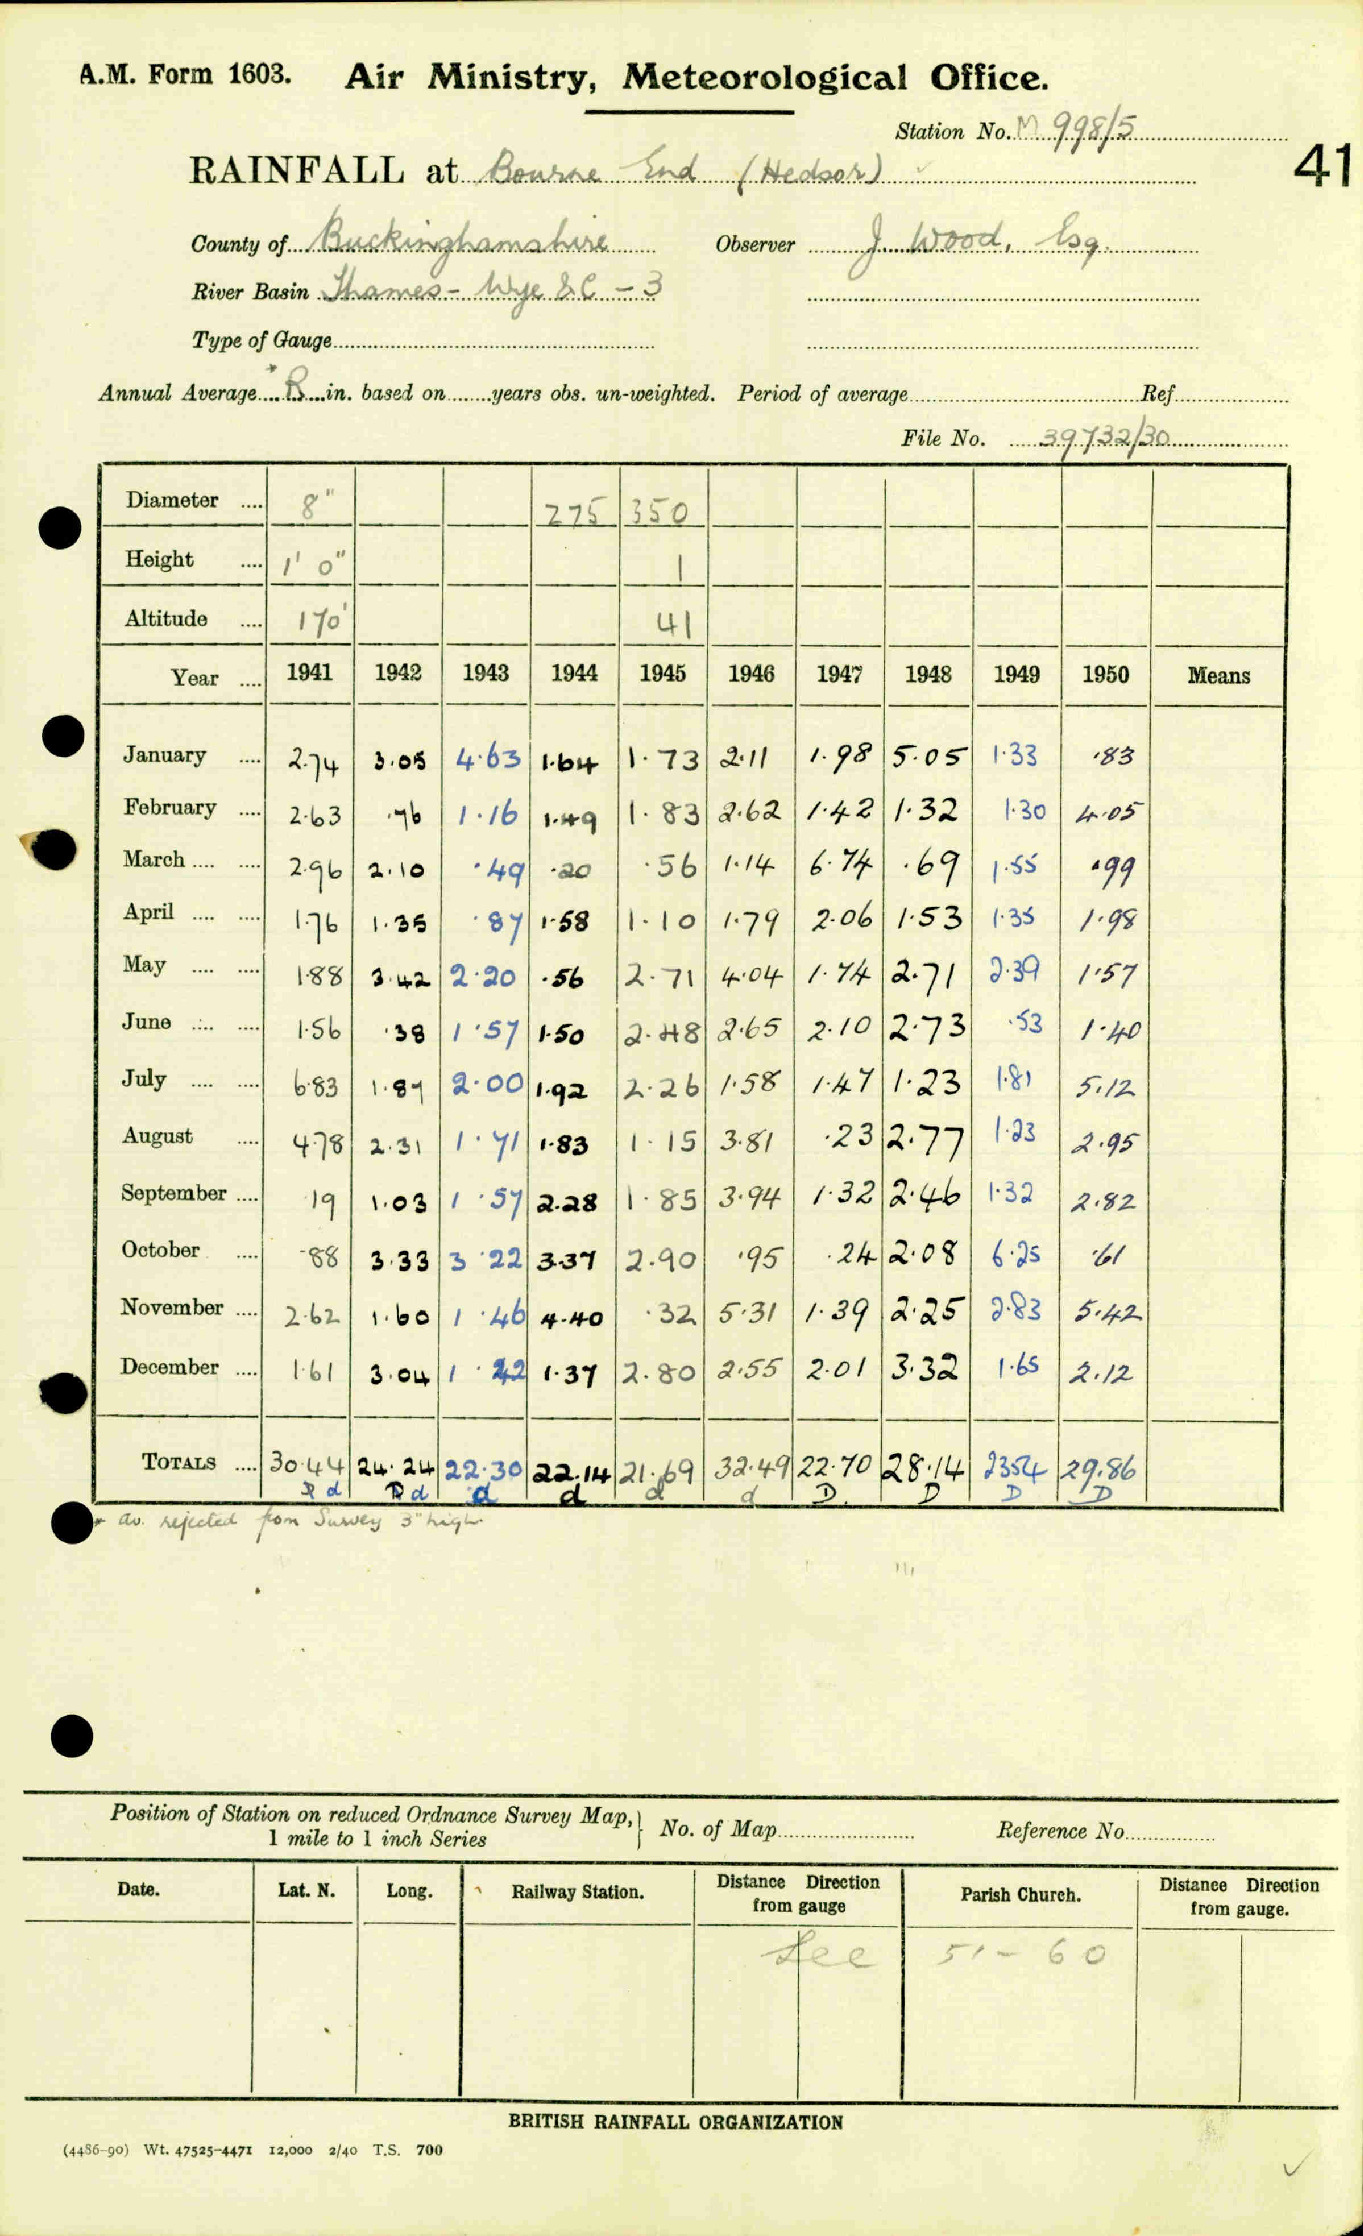 A.M. Form 1603. Air Ministry, Meteorological Office.
Station No. M 998/5
41
RAINFALL at Bourne End (Hedsor)
County of Buckinghamshire Observer J Wood, Esq.
River Basin Thames - Wye &C - 3
Type of Gauge
Annual Average * R in. based on years obs. un-weighted. Period of average Ref
File No. 39732/30
Diameter .... 8" 275 350
Height .... 1' 0" 1
Altitude .... 170' 41
Year .... 1941 1942 1943 1944 1945 1946 1947 1948 1949 1950 Means
January .... 2.74 3.05 4.63 1.64 1.73 2.11 1.98 5.05 1.33 .83
February .... 2.63 .76 1.16 1.49 1.83 2.62 1.42 1.32 1.30 4.05
March .... .... 2.96 2.10 .49 .20 .56 1.14 6.74 .69 1.55 .99
April .... .... 1.76 1.35 .87 1.58 1.10 1.79 2.06 1.53 1.35 1.98
May .... .... 1.88 3.42 2.20 .56 2.71 4.04 1.74 2.71 2.39 1.57
June .... .... 1.56 .38 1.57 1.50 2.48 2.65 2.10 2.73 .53 1.40
July .... .... 6.83 1.87 2.00 1.92 2.26 1.58 1.47 1.23 1.81 5.12
August .... 4.78 2.31 1.71 1.83 1.15 3.81 .23 2.77 1.23 2.95
September .... 19 1.03 1.57 2.28 1.85 3.94 1.32 2.46 1.32 2.82
October .... .88 3.33 3.22 3.37 2.90 .95 .24 2.08 6.25 .61
November .... 2.62 1.60 1.46 4.40 .32 5.31 1.39 2.25 2.83 5.42
December .... 1.61 3.04 1.42 1.37 2.80 2.55 2.01 3.32 1.65 2.12
TOTALS .... 30.44 24.24 22.30 22.14 21.69 32.49 22.70 28.14 23.54 29.86
R d R d d d d d D D D D
* av. rejected from Survey 3" high
Position of Station on reduced Ordnance Survey Map, } No. of Map Reference No
1 mile to 1 inch Series
Date. Lat. N. Long. Railway Station. Distance Direction from gauge Parish Church. Distance Direction from gauge.
See 51-60
BRITISH RAINFALL ORGANIZATION
(4486-90) Wt. 47525-4471 12,000 2/40 T.S. 700